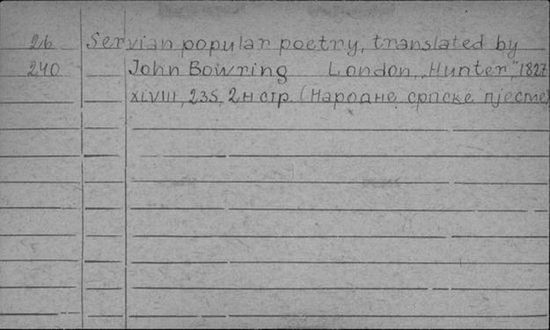 26 Servian popular poetry, translated by
240 John Bowring London, „Hunter", 1827
XLVIII, 235, 2н стр. (Народне српске пјесме)